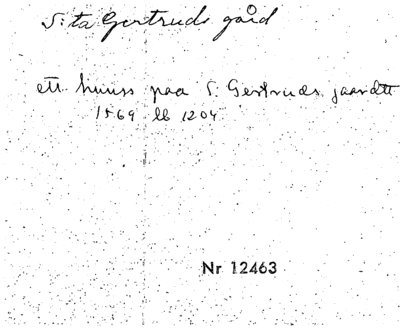 S:ta Gertruds gård
ett huuss paa S. Gertruds gaardtt
1569 lb 1204
Nr 12463